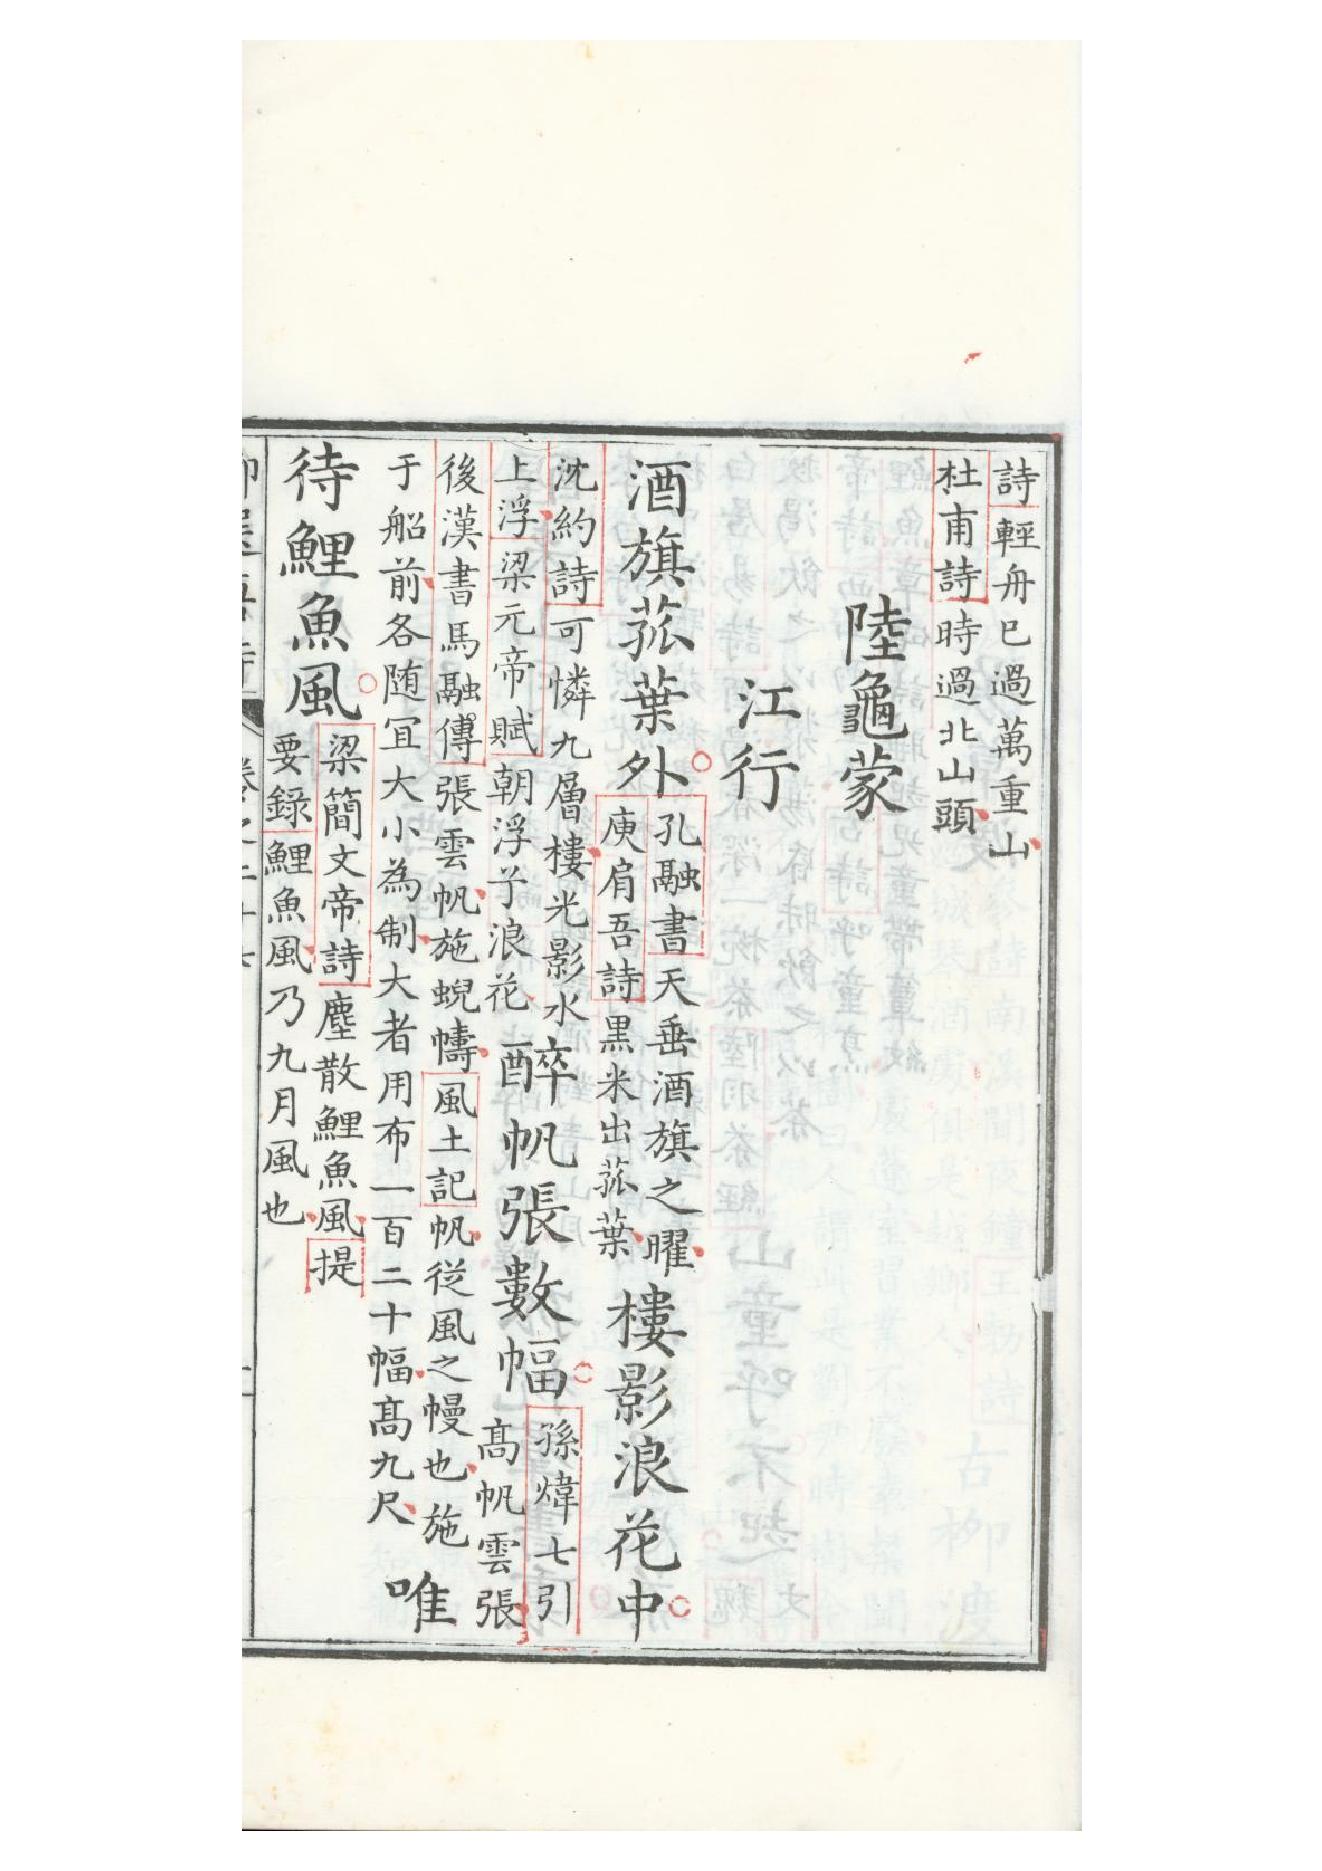 詩輕舟已過萬重山
杜甫詩時過北山頭
陸龜蒙
江行
酒旗菰葉外
孔融書天垂酒旗之曜
庾肩吾詩黑米出菰葉
樓影浪花中
沈約詩可憐九層樓光影水
上浮梁元帝賦朝浮乎浪花
醉帆張數幅
孫煒七引
高帆雲張
後漢書馬融傳張雲帆施蜺幬風土記帆從風之幔也施
于船前各随冝大小為制大者用布一百二十幅髙九尺
唯
待鯉魚風
梁簡文帝詩塵散鯉魚風提
要録鯉魚風乃九月風也